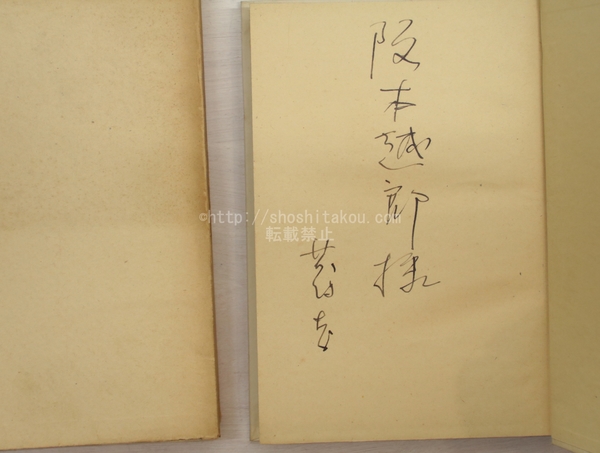 阪本越郎様
著者
©http://shoshitakou.com/
転載禁止